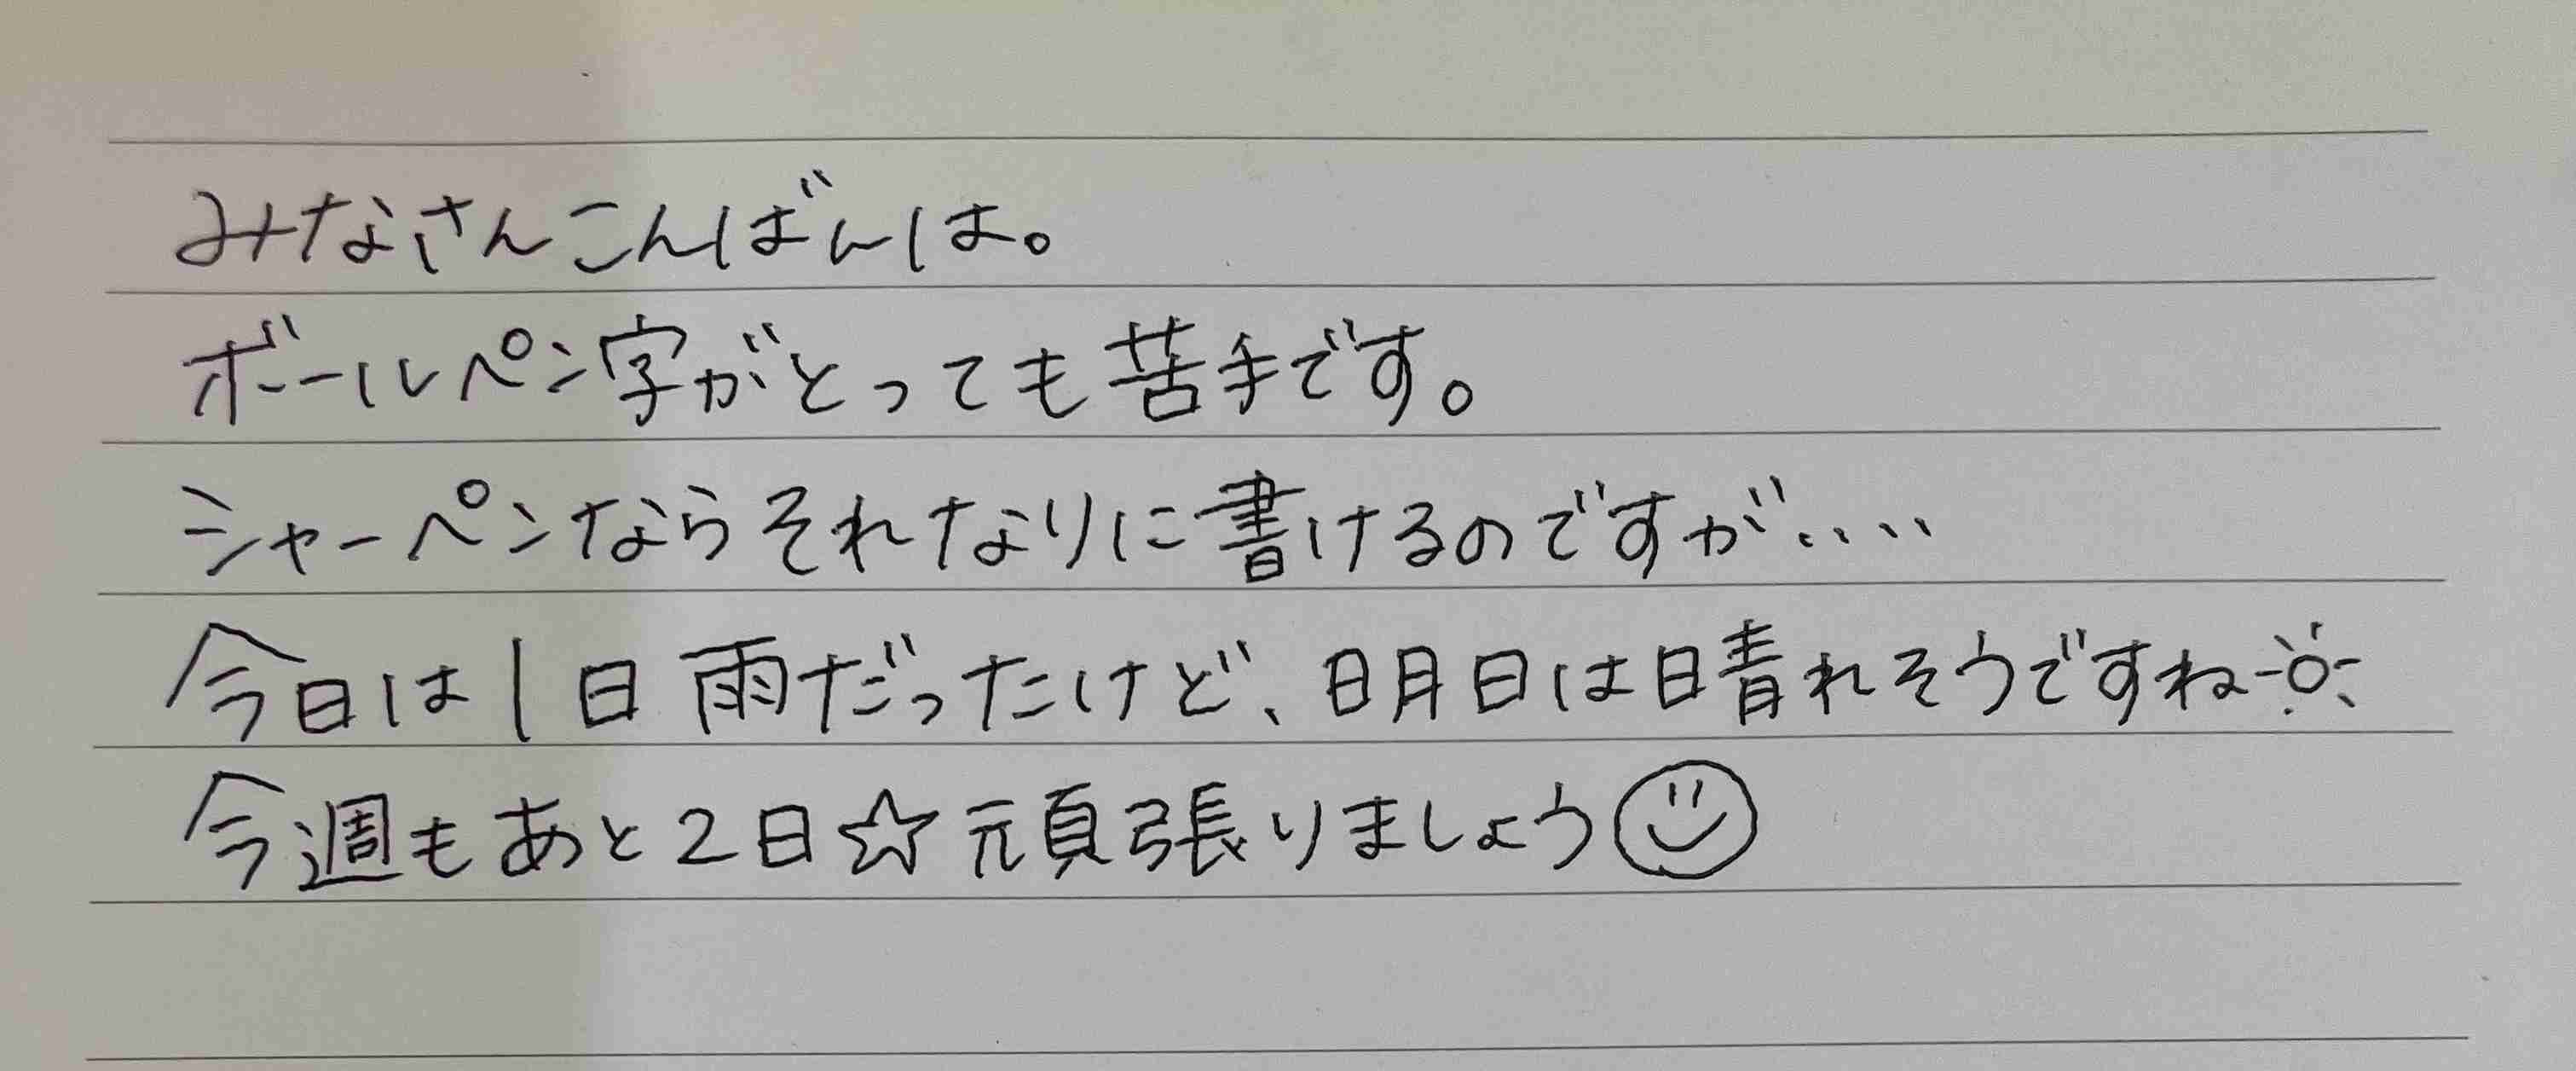 みなさんこんばんは。
ボールペン字がとっても苦手です。
シャーペンならそれなりに書けるのですが....
今日は1日雨だったけど、明日は晴れそうですね☼
今週もあと2日☆頑張りましょう☺